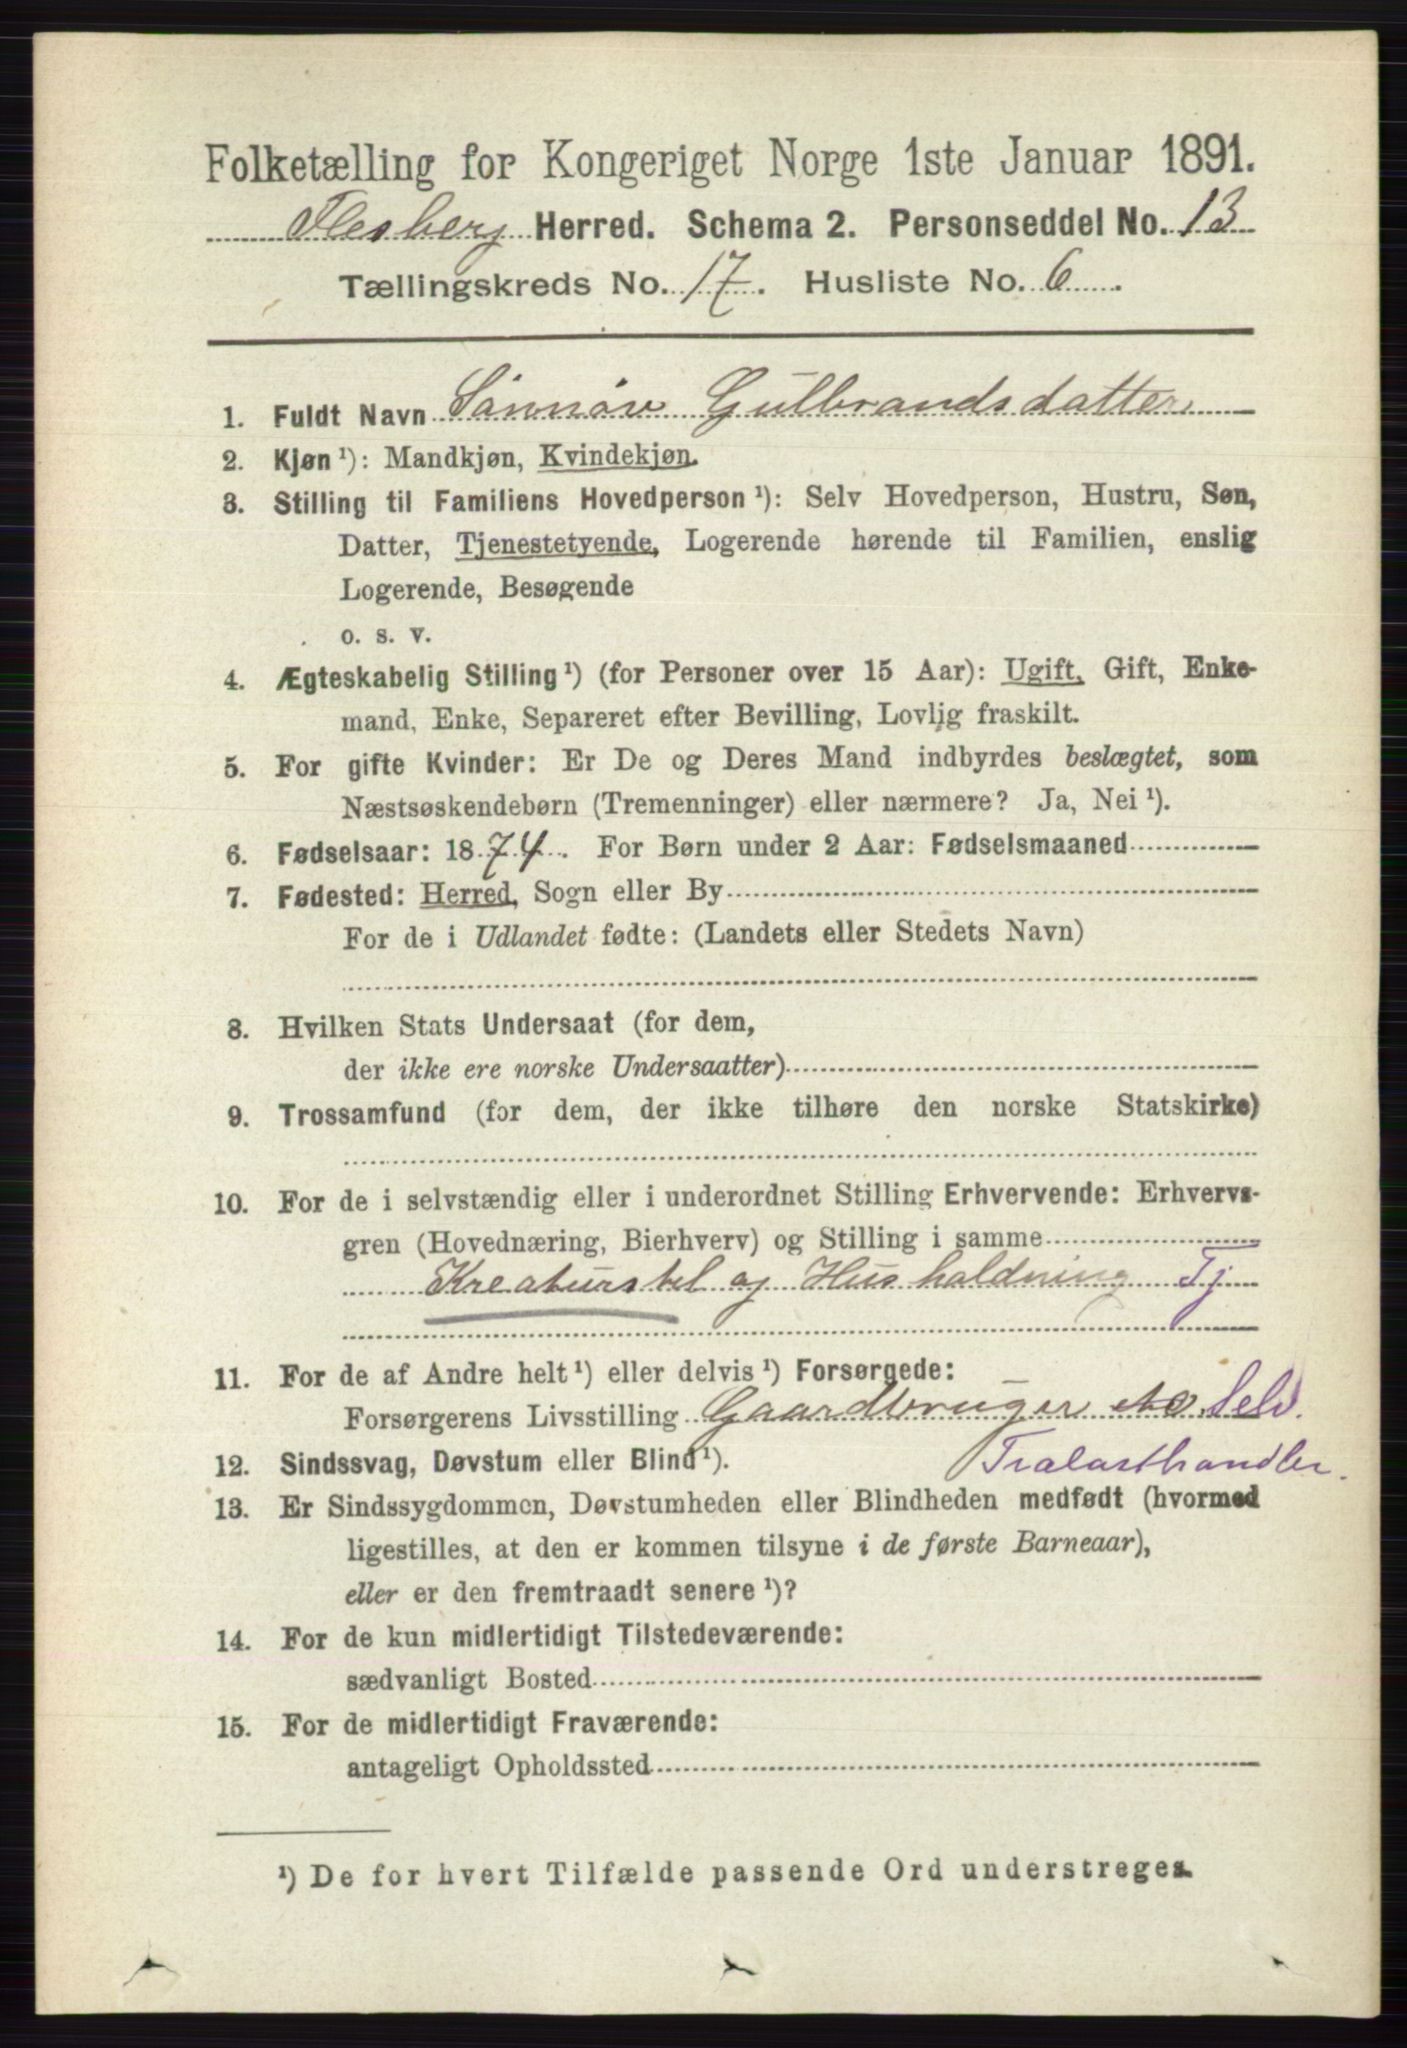 Folketælling for Kongeriget Norge 1ste Januar 1891.
Flesberg Herred. Schema 2. Personseddel No. 13
Tællingskreds No. 17. Husliste No. 6.
1. Fuldt Navn Sønnøv Gulbrandsdatter
2. Kjøn ¹): Mandkjøn, Kvindekjøn.
3. Stilling til Familiens Hovedperson ¹): Selv Hovedperson, Hustru, Søn,
Datter, Tjenestetyende, Logerende hørende til Familien, enslig
Logerende, Besøgende
o. s. v.
4. Ægteskabelig Stilling ¹) (for Personer over 15 Aar): Ugift, Gift, Enke-
mand, Enke, Separeret efter Bevilling, Lovlig fraskilt.
5. For gifte Kvinder: Er De og Deres Mand indbyrdes beslægtet, som
Næstsøskendebørn (Tremenninger) eller nærmere? Ja, Nei ¹).
6. Fødselsaar: 1874. For Børn under 2 Aar: Fødselsmaaned
7. Fødested: Herred, Sogn eller By
For de i Udlandet fødte: (Landets eller Stedets Navn)
8. Hvilken Stats Undersaat (for dem,
der ikke ere norske Undersaatter)
9. Trossamfund (for dem, der ikke tilhøre den norske Statskirke)
10. For de i selvstændig eller i underordnet Stilling Erhvervende: Erhvervs-
gren (Hovednæring, Bierhverv) og Stilling i samme
Kreaturstel og Husholdning Tj
11. For de af Andre helt ¹) eller delvis ¹) Forsørgede:
Forsørgerens Livsstilling Gaardbruger Selv.
12. Sindssvag, Døvstum eller Blind ¹). Tralasthandler.
13. Er Sindssygdommen, Døvstumheden eller Blindheden medfødt (hvormed
ligestilles, at den er kommen tilsyne i de første Barneaar),
eller er den fremtraadt senere ¹)?
14. For de kun midlertidigt Tilstedeværende:
sædvanligt Bosted
15. For de midlertidigt Fraværende:
antageligt Opholdssted
¹) De for hvert Tilfælde passende Ord understreges.